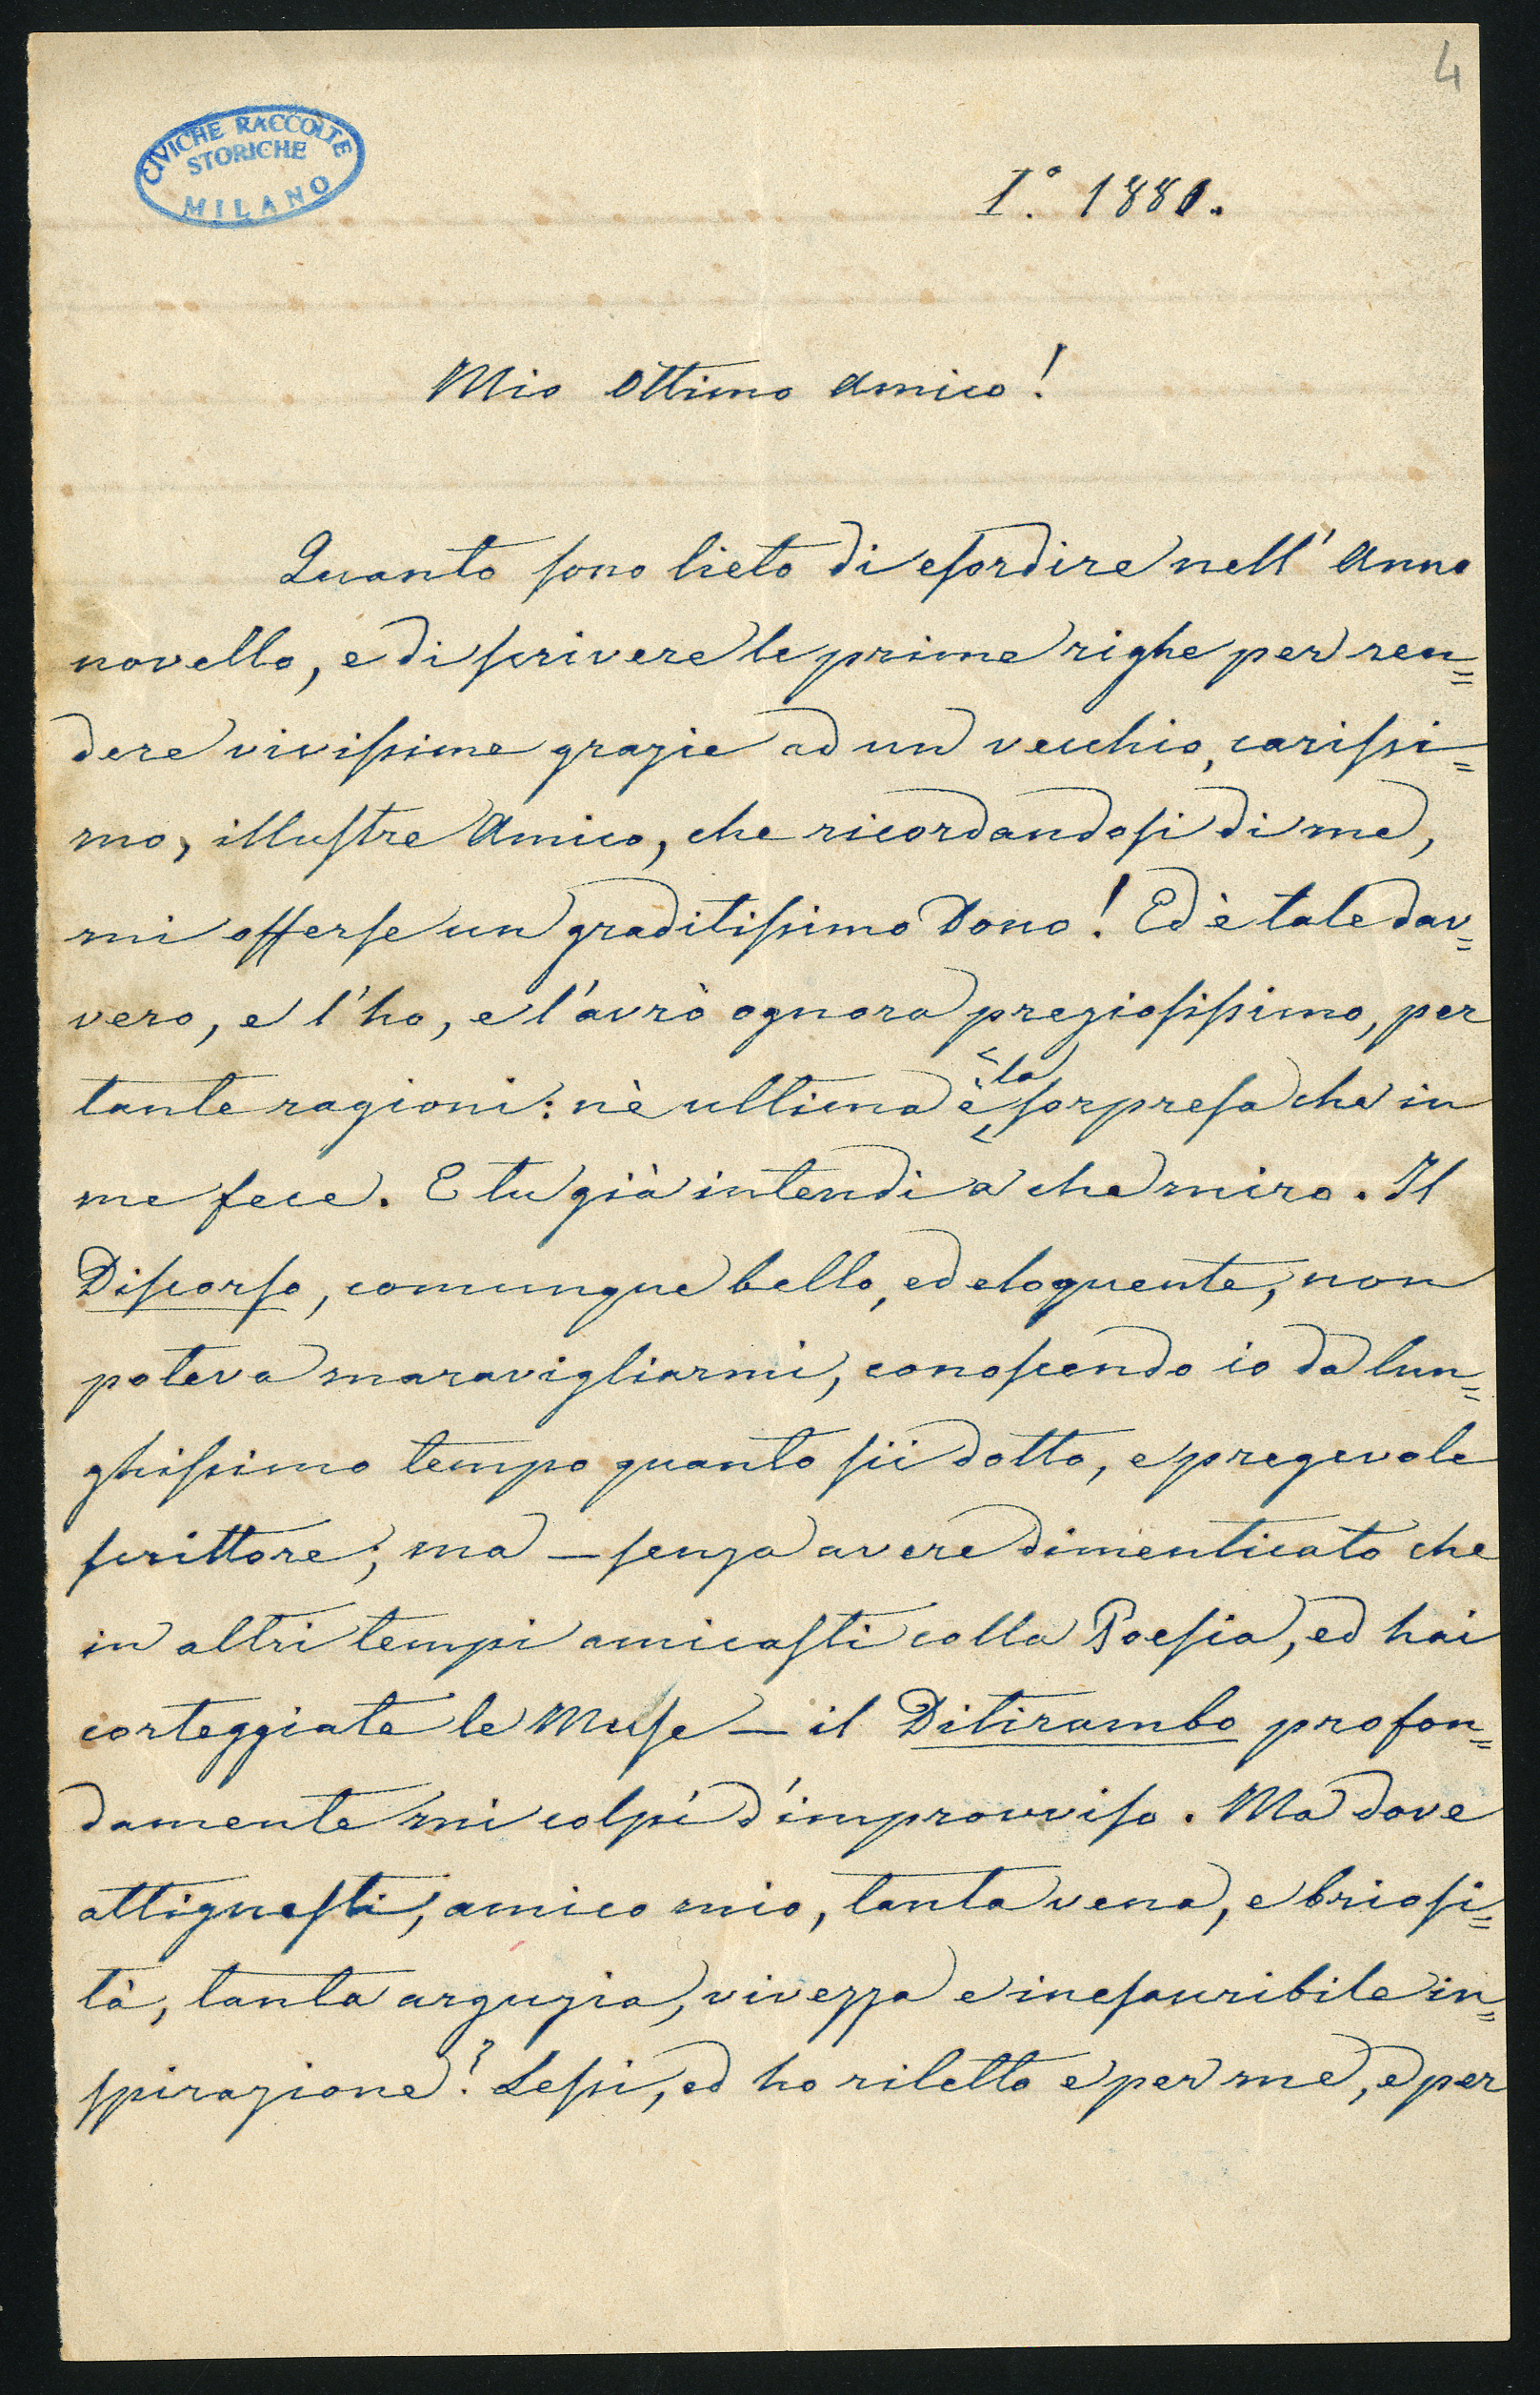 4
CIVICHE RACCOLTE
STORICHE
MILANO
I.° 1881.
Mio Ottimo Amico!
Quanto sono lieto di esordire nell' Anno
novello, e di scrivere le prime righe per ren=
dere vivissime grazie ad un vecchio, carissi=
mo, illustre Amico, che ricordandosi di me,
mi offerse un graditissimo Dono! Ed è tale dav=
vero, e l'ho, e l'avrò ognora preziosissimo, per
tante ragioni: nè ultima è la sorpresa che in
me fece. E tu già intendi a che miro. Il
Discorso, comunque bello, ed eloquente, non
poteva maravigliarmi, conoscendo io da lun=
ghissimo tempo quanto sii dotto, e pregevole
scrittore; ma – senza avere dimenticato che
in altri tempi amicasti colla Poesia, ed hai
corteggiate le Muse – il Ditirambo profon=
damente mi colpì d'improvviso. Ma dove
attignesti, amico mio, tanta vena, e briosi=
tà, tanta arguzia, vivezza e inesauribile in=
spirazione? Lessi, ed ho riletto e per me, e per